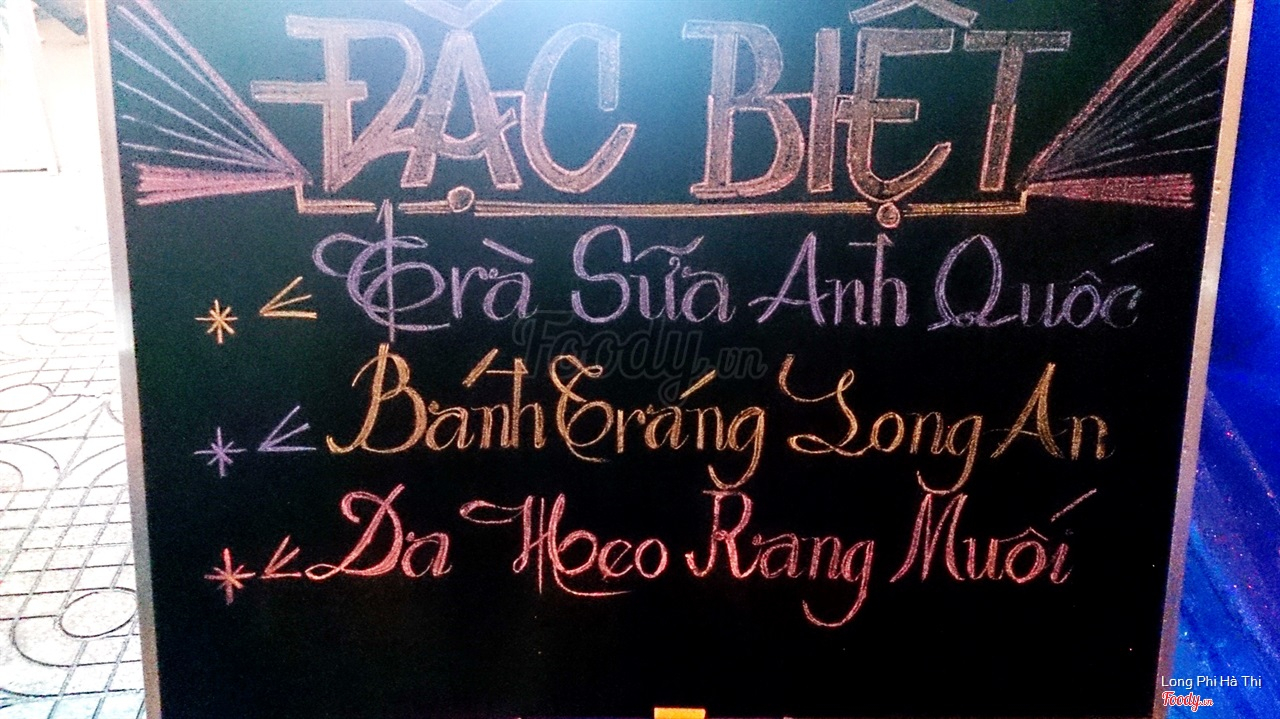 ĐẶC BIỆT
Trà Sữa Anh Quốc
Foody.vn
Bánh Tráng Long An
Da Heo Rang Muối
Long Phi Hà Thi
Foody.vn